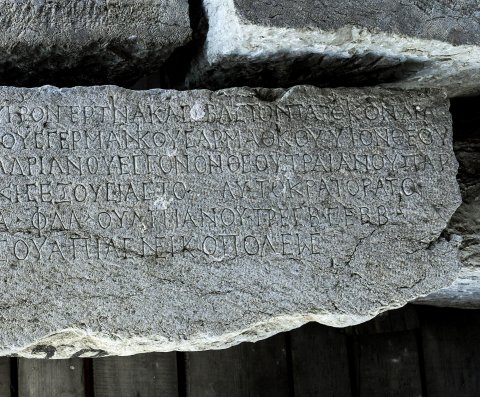 ΡΟΝ ΠΕΡΤΙΝΑΚΑ ΣΕΒΑΣΤΟΝ
ΟΥΣ ΓΕΡΜΑΝΙΚΟΥ ΣΑΡΜΑΤΙΚΟΥ ΥΙΟΝ ΘΕΟΥ
ΑΔΡΙΑΝΟΥ ΕΓΓΟΝΟΝ ΘΕΟΥ ΤΡΑΙΑΝΟΥ ΠΑΡ
ΚΗΣ ΕΞΟΥΣΙΑΣ ΤΟ · ΑΥΤΟΚΡΑΤΟΡΑ ΤΟ
ΟΥΛΠΙΑΝΟΥ ΠΡΕΣΒ ΣΕΒΒ
ΟΥΛΠΙΑΣ ΝΕΙΚΟΠΟΛΕΩΣ